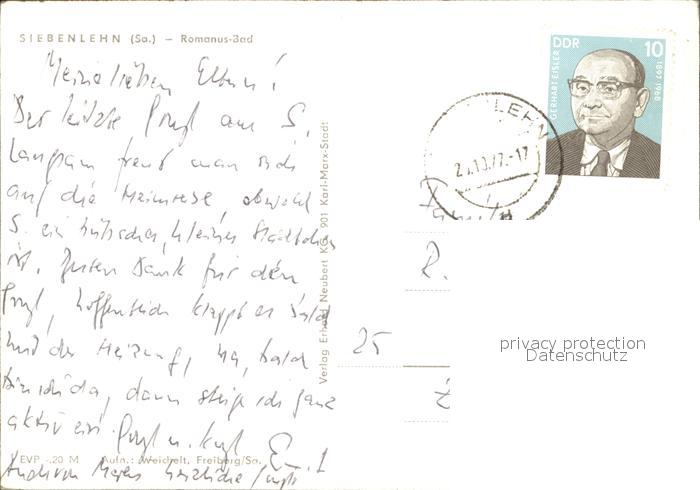 SIEBENLEHN (Sa.) – Romanus-Bad
Meine lieben Eltern!
Der letzte Gruß aus S.
Langsam freut man sich
auf die Heimreise obwohl
S. ein hübsches, kleines Städtchen
ist. Besten Dank für den
Gruß, hoffentlich klappt es bald
mit der Heizung, na, bald
bin ich da, dann steige ich ganz
aktiv ein. Gruß u. Kuß
Auch von herzliche Grüße
EVP -.20 M Aufn.: Weichelt, Freiberg/Sa.
Verlag Erhard Neubert KG, 901 Karl-Marx-Stadt
DDR 10
GERHART EISLER 1897-1968
LEHN
10.77.-17
Familie
R.
25
privacy protection
Datenschutz